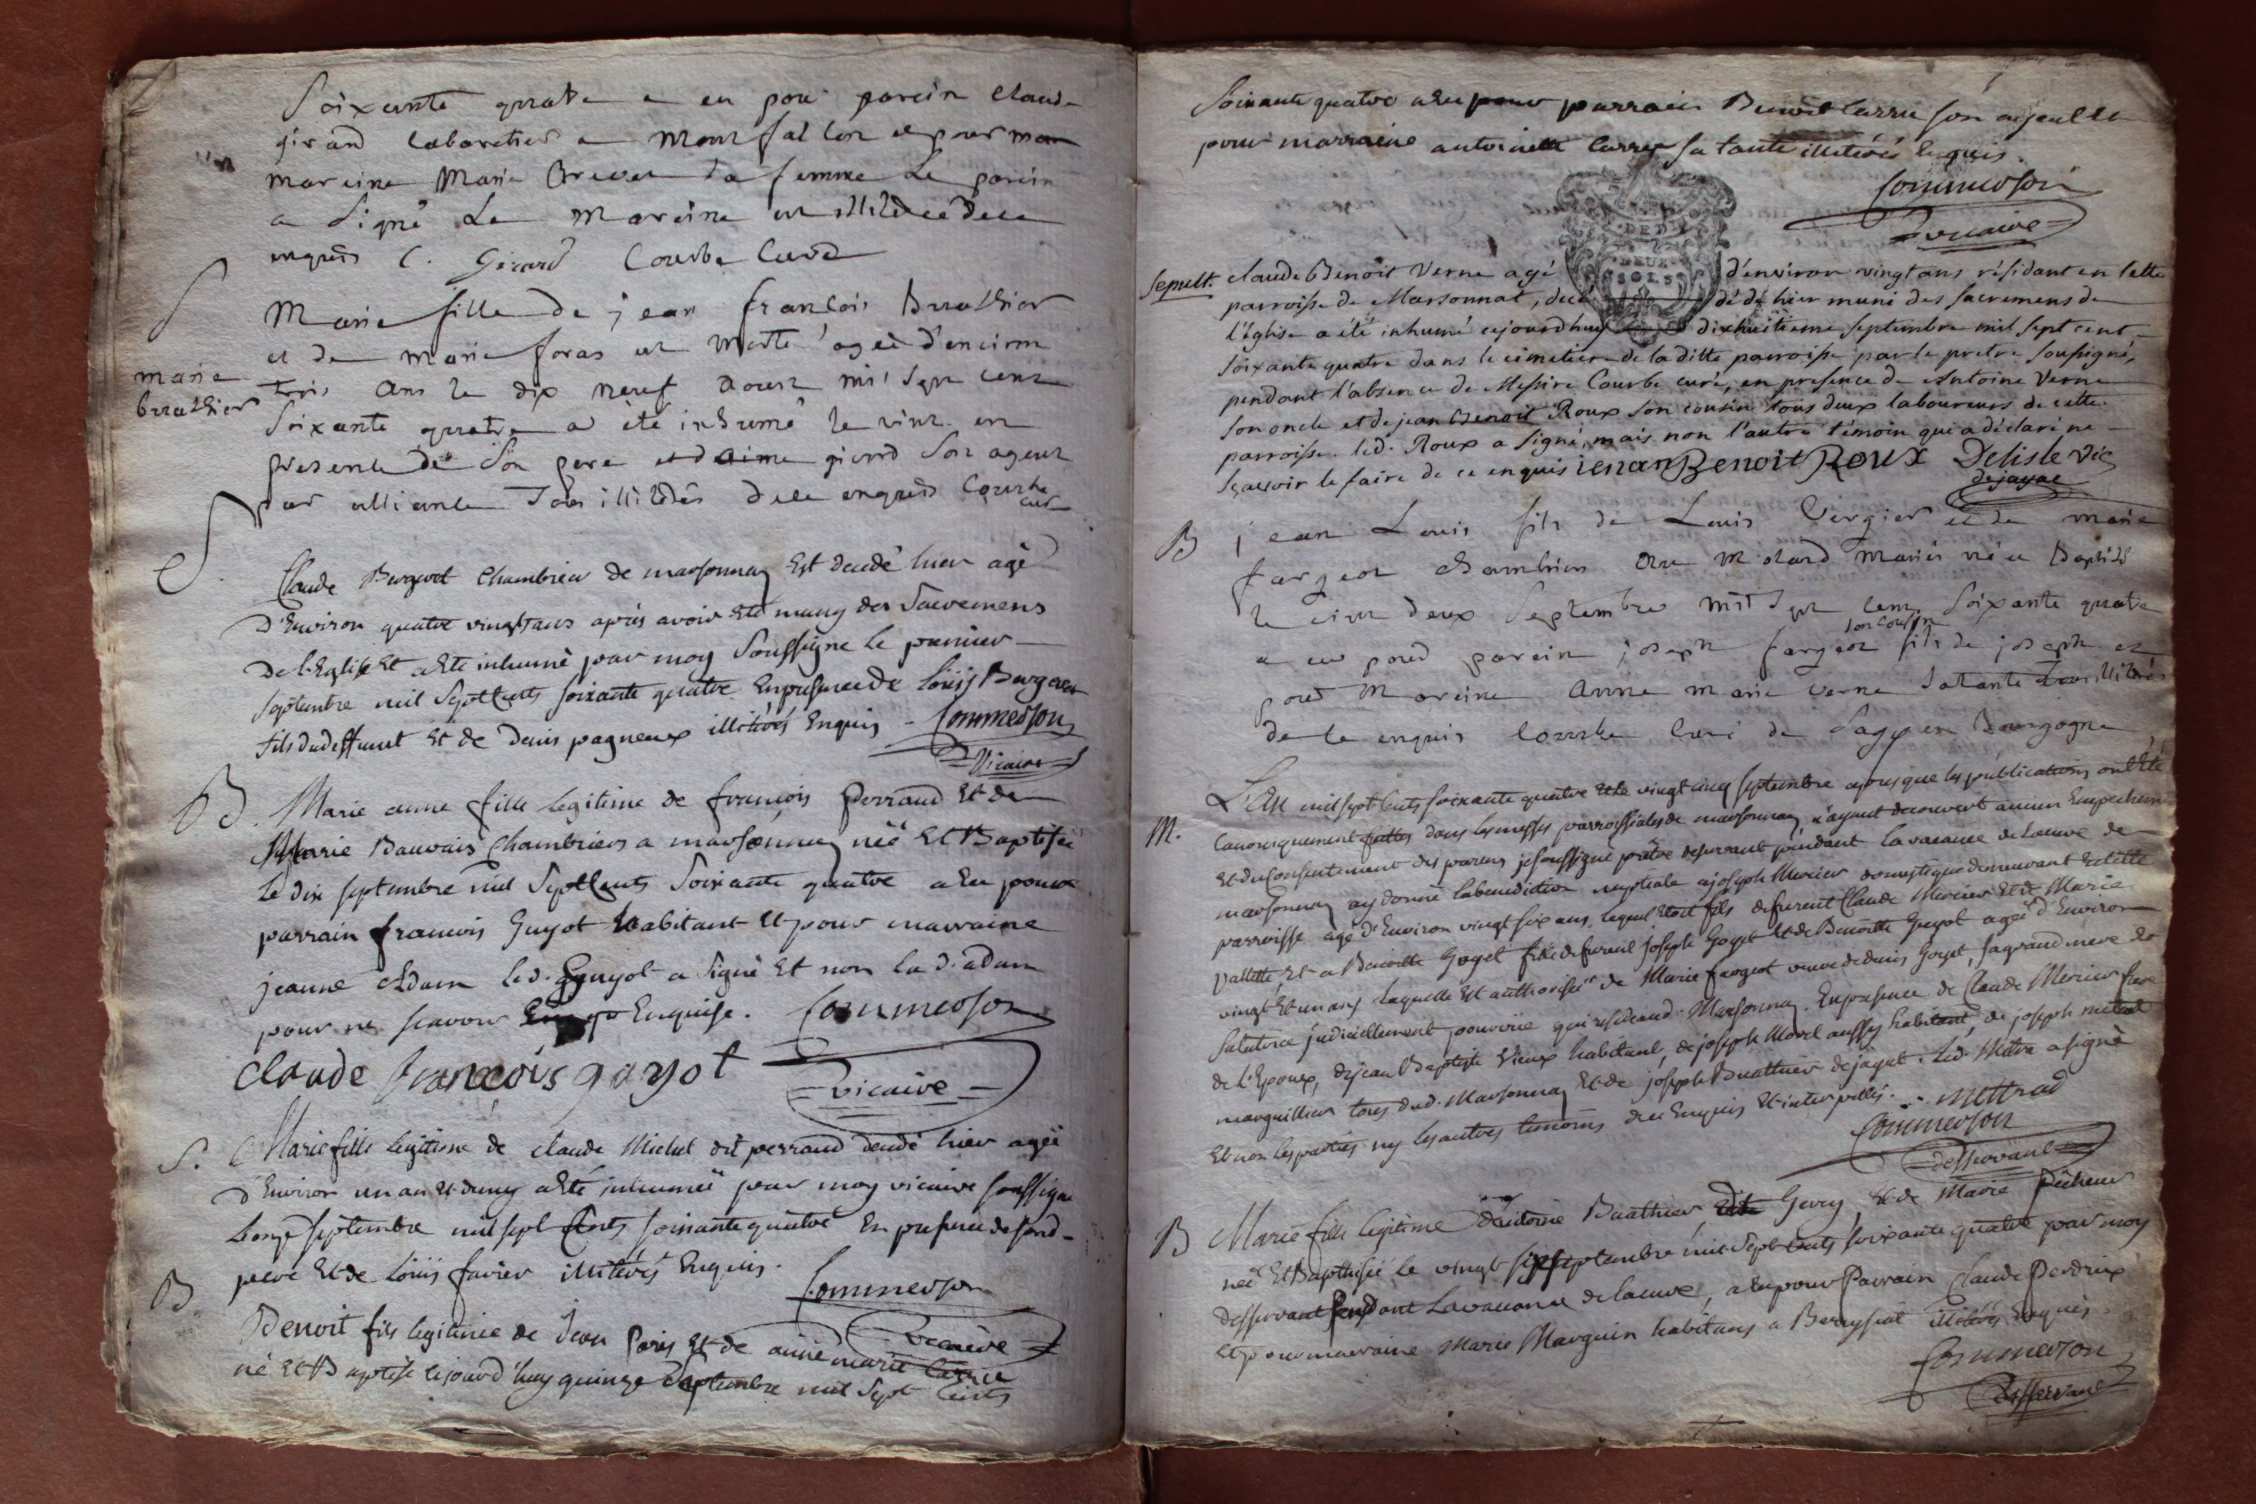 Soixante quatre a eu pour parein Claude
girard cabaretier a Montfalcon et pour
mareine Marie Brevet sa femme Le parein
a Signé La Mareine est illiterée de ce
enquis C. Girard Courbe Curé
S
Marie fille de jean françois Buathier
et de marie foras est morte agée d'environ
marie
buathier
trois ans le dix neuf Aoust mil sept cent
Soixante quatre a été inhumé le vint en
presence de Son pere et girard Son
par alliance Tous illiterés de ce enquis Courbe
curé
S.
Claude Burgevet Chambrier de marsonnay Est decedé hier agé
D'Environ quatre vingts ans après avoir Eté muny des Sacremens
De l'Eglise Et a Eté inhumé par moy Soussigne le premier
Septembre mil Sept Cents soixante quatre En presence de Loüis Burgevet
fils du deffunct Et de Denis pagneux illiterés Enquis Commerson
Vicaire
B.
Marie anne fille legitime de françois perraud Et de
Marie Bauvais Chambriers a marsonnay née Et Baptisée
Le dix septembre mil Sept Cents Soixante quatre a Eu pour
parrain francois Guyot habitant et pour marraine
jeanne Adam led. Guyot a signé Et non la d. adam
pour ne scavoir Enquise. Commerson
claude françois guyot
vicaire
S.
Marie fille legitime de claude Michel dit perraud decedé hier agée
d'Environ un an et demy a Eté inhumée par moy vicaire soussigné
le onze septembre mil sept Cents soixante quatre En presence de son d.
pere Et de Loüis favier illiterés Enquis.
Commerson
vicaire
B
Benoit fils legitime de Jean Paris Et de anne marie Carrie
né Et Baptisé cejourd'huy quinze Septembre mil Sept Cents
Soixante quatre a Eu pour parrain Benoit Carru son ajeul Et
pour marraine antoinette Carru sa tante illiterés Enquis.
Commerson
vicaire
DEUX
SOLS
Sepult.
claude Benoit Verne agé d'environ vingt ans résidant en cette
parroisse de Marsonnat, décédé hier muni des sacremens de
l'église a été inhumé cejourdhuy dixhuitieme septembre mil sept cent
soixante quatre dans le cimetiere de la ditte parroisse par le pretre soussigné,
pendant l'absence de Messire Courbe curé, en presence de Antoine Verne
son oncle et de jean Benoit Roux son cousin tous deux laboureurs de cette
parroisse. led. Roux a signé, mais non l'autre témoin qui a déclaré ne
sçavoir le faire de ce enquis ienan Benoit Roux Delisle vic
de jayac
B
jean Louis fils de Louis Vergier et de marie
fargeot chambriers au Molard mariés né et Baptisé
le vint deux Septembre mil sept cent Soixante quatre
son cousin
a eu pour parein joseph fargeot fils de joseph et
pour Mareine anne marie verne Sa tante illiterés
de ce enquis Courbe Curé de Sagy en Bourgogne
M.
L'An mil sept Cents soixante quatre Et le vingt cinq septembre apres que les publications ont Eté
Canoniquement faittes dans les messes parroissiales de marsonnay n'ayant decouvert aucun Empechement
Et du Consentement des parens je soussigné prêtre desservant pendant la vacance de la cure de
marsonnay ay donné la benediction nuptiale a joseph Merier domestique demeurant En cette
parroisse agé d'Environ vingt six ans, lequel Etoit fils de furent Claude Merier Et de Marie
Vallette, Et a Benoitte Goyet fille de furent joseph Goyet Et de Benoitte Guyot agée d'Environ
vingt Et un ans laquelle Est authorisée de Marie fargeot veuve de denis Goyet, sa grand mere Et
Sa tutrice judiciellement pourvue qui reside aud. Marsonnay. En presence de Claude Merier frere
de l'Epoux, de jean Baptiste Vieux habitant, de joseph Morel aussy habitant, de joseph
marguillier tous dud. Marsonnay Et de joseph Buathier de jayat. Led. Metra a signé
Et non les parties ny les autres temoins de ce Enquis Et interpellés. Mettrad
Commerson
desservant
B
Marie fille legitime d'antoine Buathier dit Gury Et de Marie Pêcheux
née Et Baptisée Le vingt six septembre mil Sept Cents soixante quatre par moy
desservant Pendant La vacance de la cure, a Eu pour Parrain Claude Perdrix
Et pour marraine Marie Marguin habitans a Bereyziat illiterés Enquis
Commerson
desservant